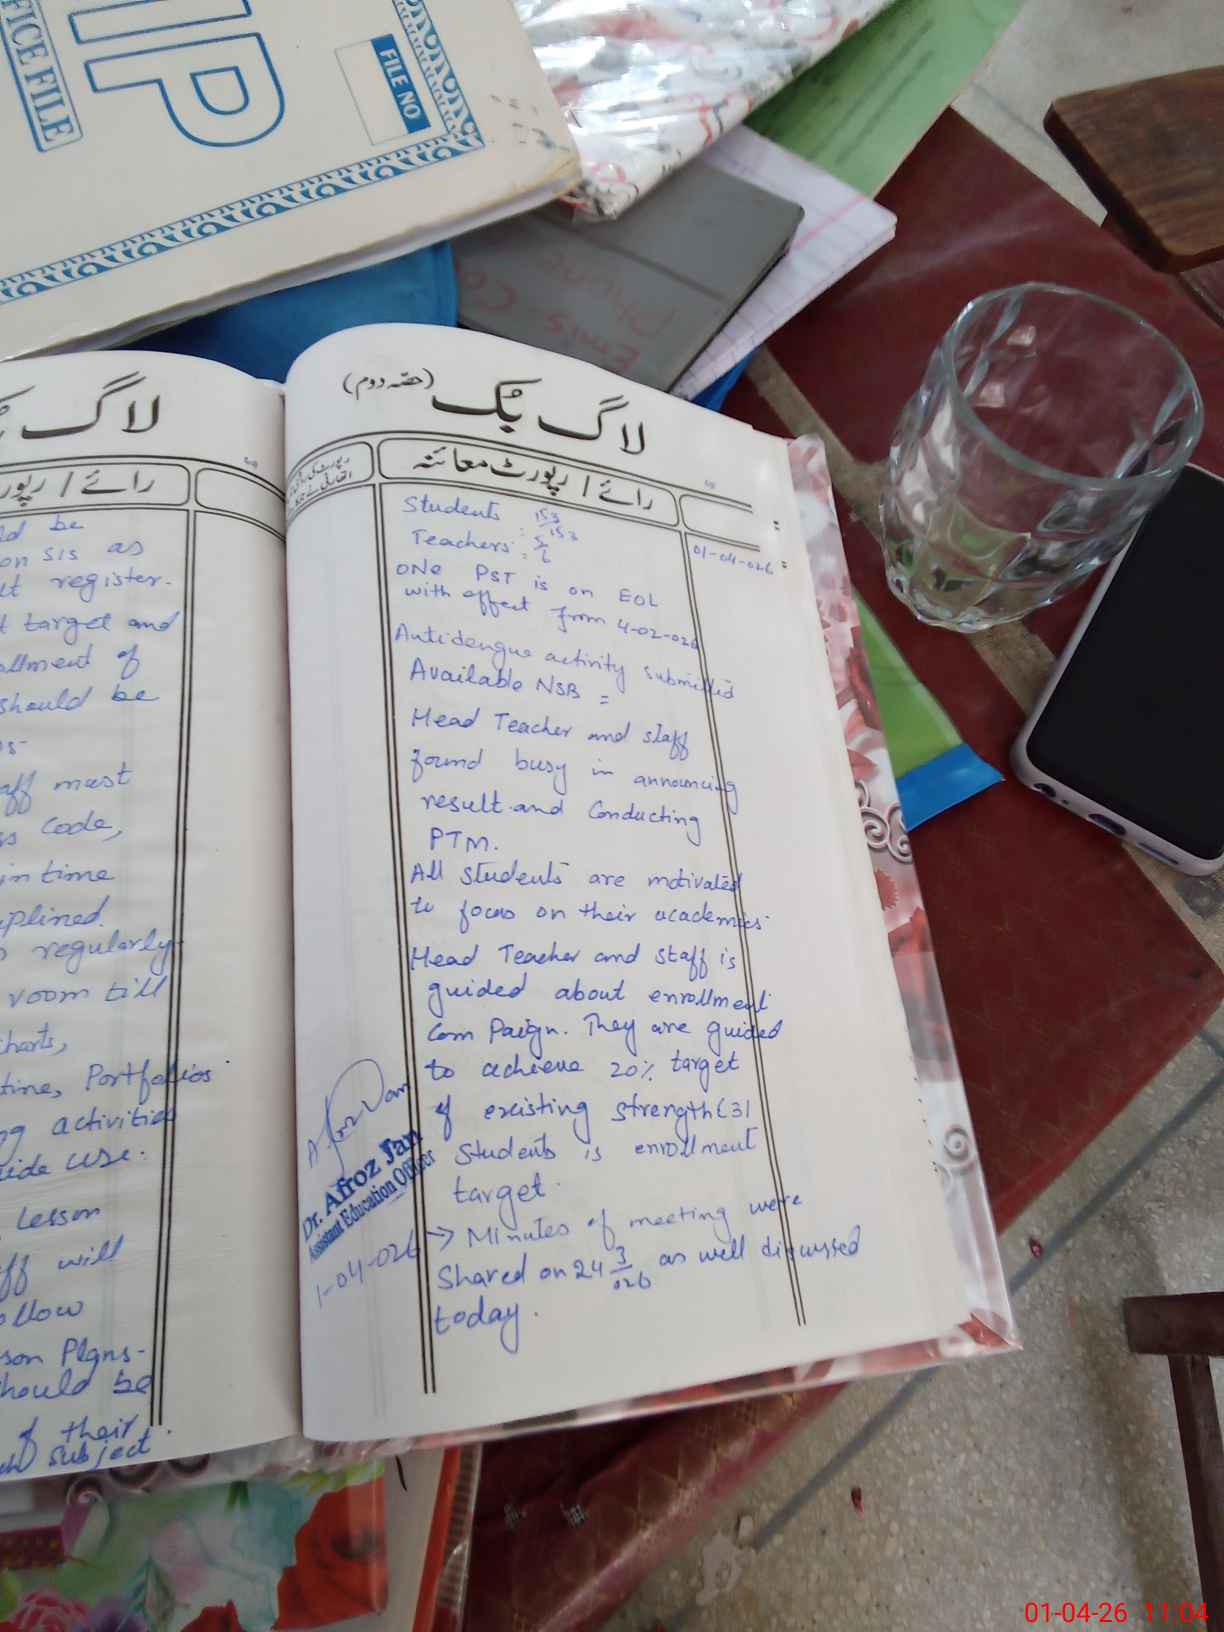 FICE FILE
IP
FILE NO
Emis
Phone
Co
لاگ
رائے / رپور
ld be
on SIS as
ut register.
t target and
ollment of
should be
aff must
ss Code,
in time
iplined.
regularly
room till
charts,
time, Portfolios
ng activities
uide use.
Lesson
ff will
ollow
son Plans-
hould be
of their
subject
لاگ بُک (حصہ دوم)
رائے / رپورٹ معائنہ
01-04-026
Students : 153/153
Teachers : 5/6
ONe PST is on EOL
with effect from 4-02-026
Antidengue activity submitted
Available NSB =
Head Teacher and staff
found busy in announcing
result and Conducting
PTM.
All students are motivated
to focus on their academics.
Head Teacher and staff is
guided about enrollment
Com Paign. They are guided
to achieve 20% target
of existing strength (31
Students is enrollment
target.
→ Minutes of meeting were
Shared on 24 3/026 as well discussed
today.
Dr. Afroz Jan
Assistant Education Officer
1-04-026
01-04-26 11:04